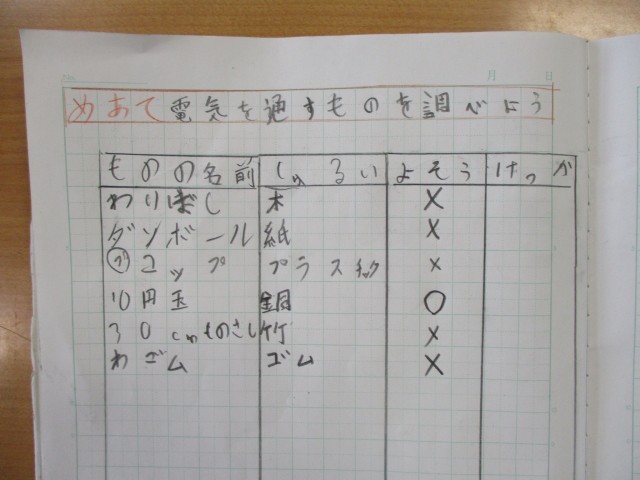 月 日
めあて 電気を通すものを調べよう
ものの名前 しゅるい よそう けっか
わりばし 木 ×
ダンボール 紙 ×
プ コップ プラスチック ×
10円玉 銅 ○
30cmものさし 竹 ×
わゴム ゴム ×